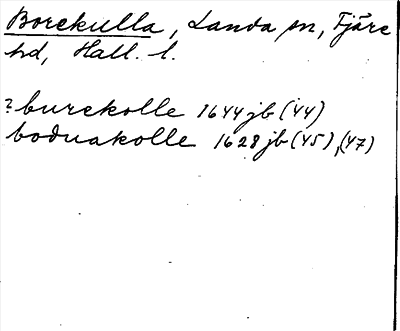 Borekulla, Landa sn, Fjäre
hd, Hall. l.
? burekolle 1644 jb (44)
boduakolle 1628 jb (45), (47)